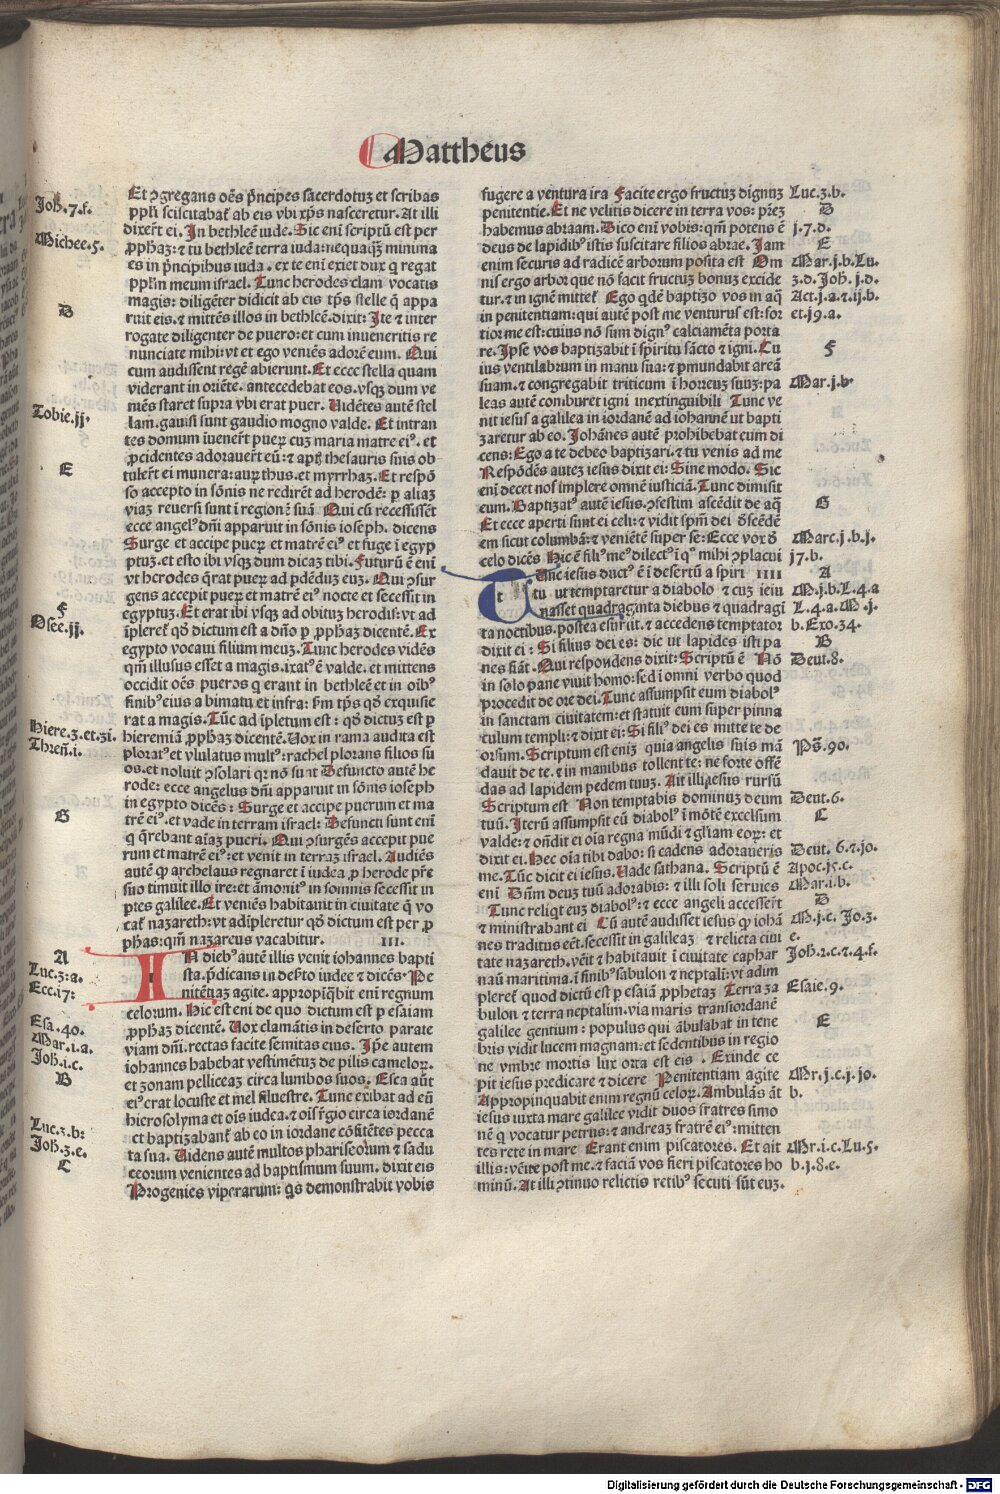 Mattheus
Et ꝯgregans oe᷒s p̃ncipes sacerdotuꝫ et scribas
ppl̃i sciscitabat᷑ ab eis vbi xp̃s nasceretur. At illi
dixer̃t ei. In bethleẽ iude. Sic eni᷒ scriptũ est per
ꝓph̃aꝫ: ⁊ tu bethleẽ terra iuda: nequaqꝫ̃ minima
es in p̃ncipibus iuda. ex te eni᷒ exiet dux q̃ regat
ppl̃m meum israel. Tunc herodes clam vocatis
magis: diligẽter didicit ab eis tp̃s stelle q̃ appa
ruit eis. ⁊ mittẽs illos in bethleẽ. dixit: Ite ⁊ inter
rogate diligenter de puero: et cum inueneritis re
nunciate mihi: vt et ego veniẽs adorẽ eum. Qui
cum audissent regẽ abierunt. Et ecce stella quam
viderant in oriẽte. antecedebat eos. vsqꝫ dum ve
niẽs staret supra vbi erat puer. Uidẽtes autẽ stel
lam. gauisi sunt gaudio mogno valde. Et intran
tes domum iuener̃t pueꝝ cuꝫ maria matre eiꝰ. et
ꝓcidentes adorauer̃t eũ: ⁊ apt̃ꝭ thesauris suis ob
tuler̃t ei munera: auꝝ thus. et myrrhaꝫ. Et respõ
so accepto in sõnis ne redirẽt ad herodẽ: ꝑ aliaꝫ
viaꝫ reuersi sunt ĩ regionẽ suã Qui cũ recessissẽt
ecce angelꝰ dñi apparuit in sõnis ioseph. dicens
Surge et accipe pueꝝ et matrẽ eiꝰ et fuge ĩ egyp
ptuꝫ. et esto ibi vsqꝫ dum dicaꝫ tibi. Futurũ ẽ eni᷒
vt herodes q̃rat pueꝝ ad ꝑdẽduꝫ euꝫ. Qui ꝯsur
gens accepit pueꝝ et matrẽ eiꝰ nocte et secessit in
egyptuꝫ. Et erat ibi vsqꝫ ad obituꝫ herodis: vt ad
ĩpleret᷑ qd̃ dictum est a dño ꝑ ꝓph̃aꝫ dicentẽ. Ex
egypto vocaui filium meuꝫ. Tunc herodes vidẽs
qm̃ illusus esset a magis. iratꝰ ẽ valde. et mittens
occidit oẽs pueros q̃ erant in bethleẽ et in oĩbꝰ
finibꝰ eius a bimatu et infra: s̃m tp̃s qd̃ exquisie
rat a magis. Tũc ad ĩpletum est: qd̃ dictuꝫ est ꝑ
hieremiã ꝓph̃aꝫ dicentẽ. Uox in rama audita est
ploratꝰ et vlulatus multꝰ: rachel plorans filios su
os. et noluit ꝯsolari qꝛ nõ sunt Defuncto autẽ he
rode: ecce angelus dñi apparuit in sõnis ioseph
in egypto dicẽs: Surge et accipe puerum et ma
trẽ eiꝰ. et vade in terram israel: Defuncti sunt eni᷒
q̃ q̃rebant aĩaꝫ pueri. Qui ꝯsurgẽs accepit pue
rum et matrẽ eiꝰ: et venit in terraꝫ israel. Audiẽs
autẽ qꝫ archelaus regnaret ĩ iudea ꝓ herode pr̃e
suo timuit illo ire: et ãmonitꝰ in somnis secessit in
ꝑtes galilee. Et veniẽs habitauit in ciuitate q̃ vo
cat᷑ nazareth: vt adĩpleretur qd̃ dictum est per ꝓ
phãs: qm̃ nazareus vacabitur. III.
IN diebꝰ autẽ illis venit iohannes bapti
sta. p̃dicans in deserto iudee ⁊ dicẽs. Pe
nitẽtiaꝫ agite. appropiq̃bit eni᷒ regnum
celorum. Hic est eni᷒ de quo dictum est ꝑ esaiam
ꝓph̃aꝫ dicentẽ. Uox clamãtis in deserto parate
viam dñi. rectas facite semitas eius. Ip̃e autem
iohannes habebat vestimẽtuꝫ de pilis cameloꝝ.
et zonam pelliceaꝫ circa lumbos suos. Esca aũt
eiꝰ erat locuste et mel siluestre. Tunc exibat ad eũ
hierosolyma et oĩs iudea. ⁊ oĩs regio circa iordanẽ
et baptizabant᷑ ab eo in iordane cõfitẽtes pecca
ta sua. Uidens autẽ multos phariseorum ⁊ sadu
ceorum venientes ad baptismum suum. dixit eis
Progenies viperarum: qs̃ demonstrabit vobis
Joh.7.f.
Michee.5.
B
Tobie.jj.
E
F
Osee.jj.
Hiere.3.et.31.
Thren̄.i.
G
A
Luc.3:a.
Ecc.17:
Esa.40.
Mar.1.a.
Joh.i.c.
B
Luc.3.b:
Joh.3.e.
C
fugere a ventura ira Facite ergo fructuꝫ dignuꝫ
penitentie. Et ne velitis dicere in terra vos: pr̃eꝫ
habemus abraam. Dico eni᷒ vobis: qm̃ potens ẽ
deus de lapidibꝰ istis suscitare filios abrae. Jam
enim securis ad radicẽ arborum posita est Om
nis ergo arbor que nõ facit fructuꝫ bonuꝫ excide
tur. ⁊ in ignẽ mittet᷑ Ego qd̃ẽ baptizo vos in aq̃
in penitentiam: qui autẽ post me venturus est: for
tior me est: cuius nõ sum dignꝰ calciamẽta porta
re. Ipse vos baptizabit ĩ spiritu sãcto ⁊ igni. Cu
ius ventilabrum in manu sua: ⁊ ꝑmundabit areã
suam. ⁊ congregabit triticum ĩ horreuꝫ suuꝫ: pa
leas autẽ comburet igni inextinguibili Tunc ve
nit iesus a galilea in iordanẽ ad iohannẽ ut bapti
zaretur ab eo. Johãnes autẽ prohibebat eum di
cens: Ego a te debeo baptizari. ⁊ tu venis ad me
Respõdẽs auteꝫ iesus dixit ei: Sine modo. Sic
eni᷒ decet nos implere omnẽ iusticiã. Tunc dimisit
eum. Baptizatꝰ autẽ iesus. ꝯfestim ascẽdit de aq̃
Et ecce aperti sunt ei celi: ⁊ vidit spm̃ dei d̃scẽdẽ
em sicut columbã: ⁊ veniẽtẽ super se: Ecce vox d̃
celo dicẽs Hic ẽ filiꝰ meꝰ dilectꝰ ĩ qꝰ mihi ꝯplacui
TUnc iesus ductꝰ ẽ ĩ desertũ a spiri IIII
tu ut temptaretur a diabolo ⁊ cuꝫ ieiu
nasset quadraginta diebus ⁊ quadragi
ta noctibus. postea esurijt. ⁊ accedens temptator
dixit ei: Si filius dei es: dic ut lapides isti pa
nes fiãt. Qui respondens dixit: Scriptũ ẽ Nõ
in solo pane viuit homo: sed ĩ omni verbo quod
procedit de ore dei. Tunc assumpsit eum diabolꝰ
in sanctam ciuitatem: et statuit eum super pinna
culum templi: ⁊ dixit ei: Si filiꝰ dei es mitte te de
orsum. Scriptum est eniꝫ quia angelis suis mã
dauit de te. ⁊ in manibus tollent te: ne forte offẽ
das ad lapidem pedem tuuꝫ. Ait illi iesus rursũ
Scriptum est Non temptabis dominuꝫ deum
tuũ. Iterũ assumpsit eũ diabolꝰ ĩ mõtẽ excelsum
valde: ⁊ oñdit ei oĩa regna mũdi ⁊ gl̃iam eoꝝ: et
dixit ei. Hec oĩa tibi dabo: si cadens adoraueris
me. Tũc dicit ei iesus. Uade sathana. Scriptũ ẽ
eni᷒ Dñm deuꝫ tuũ adorabis: ⁊ illi soli seruies
Tunc reliqt̃ euꝫ diabolꝰ: ⁊ ecce angeli accesser̃t
⁊ ministrabant ei Cũ autẽ audisset iesus qꝫ iohã
nes traditus eẽt. secessit in galileaꝫ ⁊ relicta ciui
tate nazareth. vẽit ⁊ habitauit ĩ ciuitate caphar
naũ maritima. ĩ finibꝰ sabulon ⁊ neptali: vt adim
pleret᷑ quod dictũ est ꝑ esaiã ꝓphetaꝫ Terra za
bulon ⁊ terra neptalim. via maris transiordanẽ
galilee gentium: populus qui ãbulabat in tene
bris vidit lucem magnam: et sedentibus in regio
ne vmbre mortis lux orta est eis. Exinde ce
pit iesus predicare ⁊ dicere Penitentiam agite
Appropinquabit enim regnũ celoꝝ. Ambulãs aũt
iesus iuxta mare galilee vidit duos fratres simo
nẽ q̃ vocatur petrus: ⁊ andreaꝫ fratrẽ eiꝰ: mitten
tes rete in mare Erant enim piscatores. Et ait
illis: vẽite post me. ⁊ faciã vos fieri piscatores ho
minũ. At illi ꝯtinuo relictis retibꝰ secuti sũt euꝫ.
Luc.3.b.
D
j.7.d.
E
Mar.j.b.Lu.
3.d.Joh.j.d.
Act.j.a.⁊.ij.b.
et.j9.a.
F
Mar.j.b
G
Marc.j.b.j.
j7.b.
A
M.j.b.L.4.a
L.4.a.M.j.
b.Exo.34.
B
Deut.8.
Ps̃.90.
Deut.6.
C
Deut.6.⁊.jo.
Apoc.j5.c.
Mar.i.b.
D
M.j.c. Jo.3.
e.
Joh.2.c.⁊.4.f.
Esaie.9.
E
Mr.j.c.j.jo.
b.
Mr.i.c.Lu.5.
b.j.8.e.
Digitalisierung gefördert durch die Deutsche Forschungsgemeinschaft - DFG